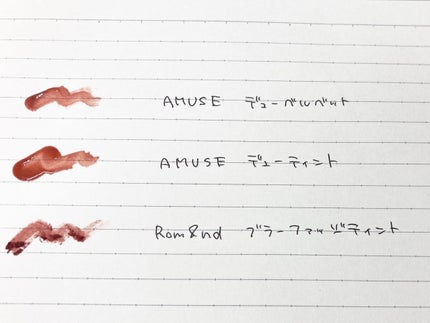 AMUSE デューベルベット
AMUSE デューティント
Rom&nd ブラーファッジティント